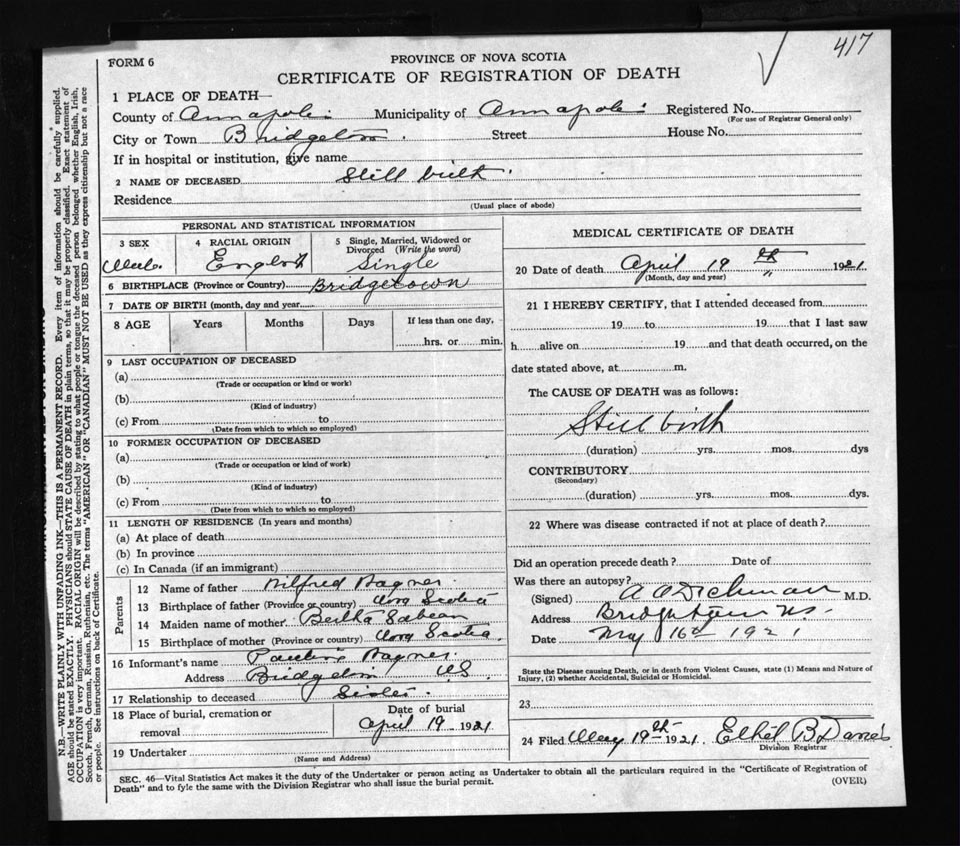 417
FORM 6
PROVINCE OF NOVA SCOTIA
CERTIFICATE OF REGISTRATION OF DEATH
1 PLACE OF DEATH—
County of Annapolis Municipality of Annapolis Registered No.
(For use of Registrar General only)
City or Town Bridgetown Street House No.
If in hospital or institution, give name
2 NAME OF DECEASED Still birth
Residence
(Usual place of abode)
PERSONAL AND STATISTICAL INFORMATION
3 SEX
4 RACIAL ORIGIN
English
5 Single, Married, Widowed or
Divorced (Write the word)
Single
6 BIRTHPLACE (Province or Country) Bridgetown
7 DATE OF BIRTH (month, day and year
8 AGE Years Months Days If less than one day,
hrs. or min.
9 LAST OCCUPATION OF DECEASED
(a)
(Trade or occupation or kind or work)
(b)
(Kind of industry)
(c) From to
(Date from which to which so employed)
10 FORMER OCCUPATION OF DECEASED
(a)
(Trade or occupation or kind of work)
(b)
(Kind of industry)
(c) From to
(Date from which to which so employed)
11 LENGTH OF RESIDENCE (In years and months)
(a) At place of death
(b) In province
(c) In Canada (if an immigrant)
Parents
12 Name of father Wilfred Wagner
13 Birthplace of father (Province or country) Nova Scotia
14 Maiden name of mother Bertha Sabean
15 Birthplace of mother (Province or country) Nova Scotia
16 Informant's name Pauline Wagner
Address Bridgetown NS
17 Relationship to deceased Sister
18 Place of burial, cremation or
removal
Date of burial
April 19 1921
19 Undertaker
(Name and Address)
MEDICAL CERTIFICATE OF DEATH
20 Date of death April 19th 1921
(Month, day and year)
21 I HEREBY CERTIFY, that I attended deceased from
19 to 19 that I last saw
h alive on 19 and that death occurred, on the
date stated above, at m.
The CAUSE OF DEATH was as follows:
Still birth
(duration) yrs. mos. dys
CONTRIBUTORY
(Secondary)
(duration) yrs. mos. dys.
22 Where was disease contracted if not at place of death?
Did an operation precede death? Date of
Was there an autopsy?
(Signed) M.D.
Address Bridgetown NS.
Date May 16th 1921
State the Disease causing Death, or in death from Violent Causes, state (1) Means and Nature of
Injury, (2) whether Accidental, Suicidal or Homicidal.
23
24 Filed May 19th 1921. Ethel B Daniels
Division Registrar
SEC. 46—Vital Statistics Act makes it the duty of the Undertaker or person acting as Undertaker to obtain all the particulars required in the "Certificate of Registration of
Death" and to fyle the same with the Division Registrar who shall issue the burial permit.
(OVER)
N.B.—WRITE PLAINLY WITH UNFADING INK—THIS IS A PERMANENT RECORD. Every item of information should be carefully supplied.
AGE should be stated EXACTLY. PHYSICIANS should STATE CAUSE OF DEATH in plain terms, so that it may be properly classified. Exact statement of
OCCUPATION is very important. RACIAL ORIGIN will be described by stating to what people or tongue the deceased person belonged whether English, Irish,
Scotch, French, German, Russian, Ruthenian, etc. The terms "AMERICAN" OR "CANADIAN" MUST NOT BE USED as they express citizenship but not a race
or people. See instructions on back of Certificate.